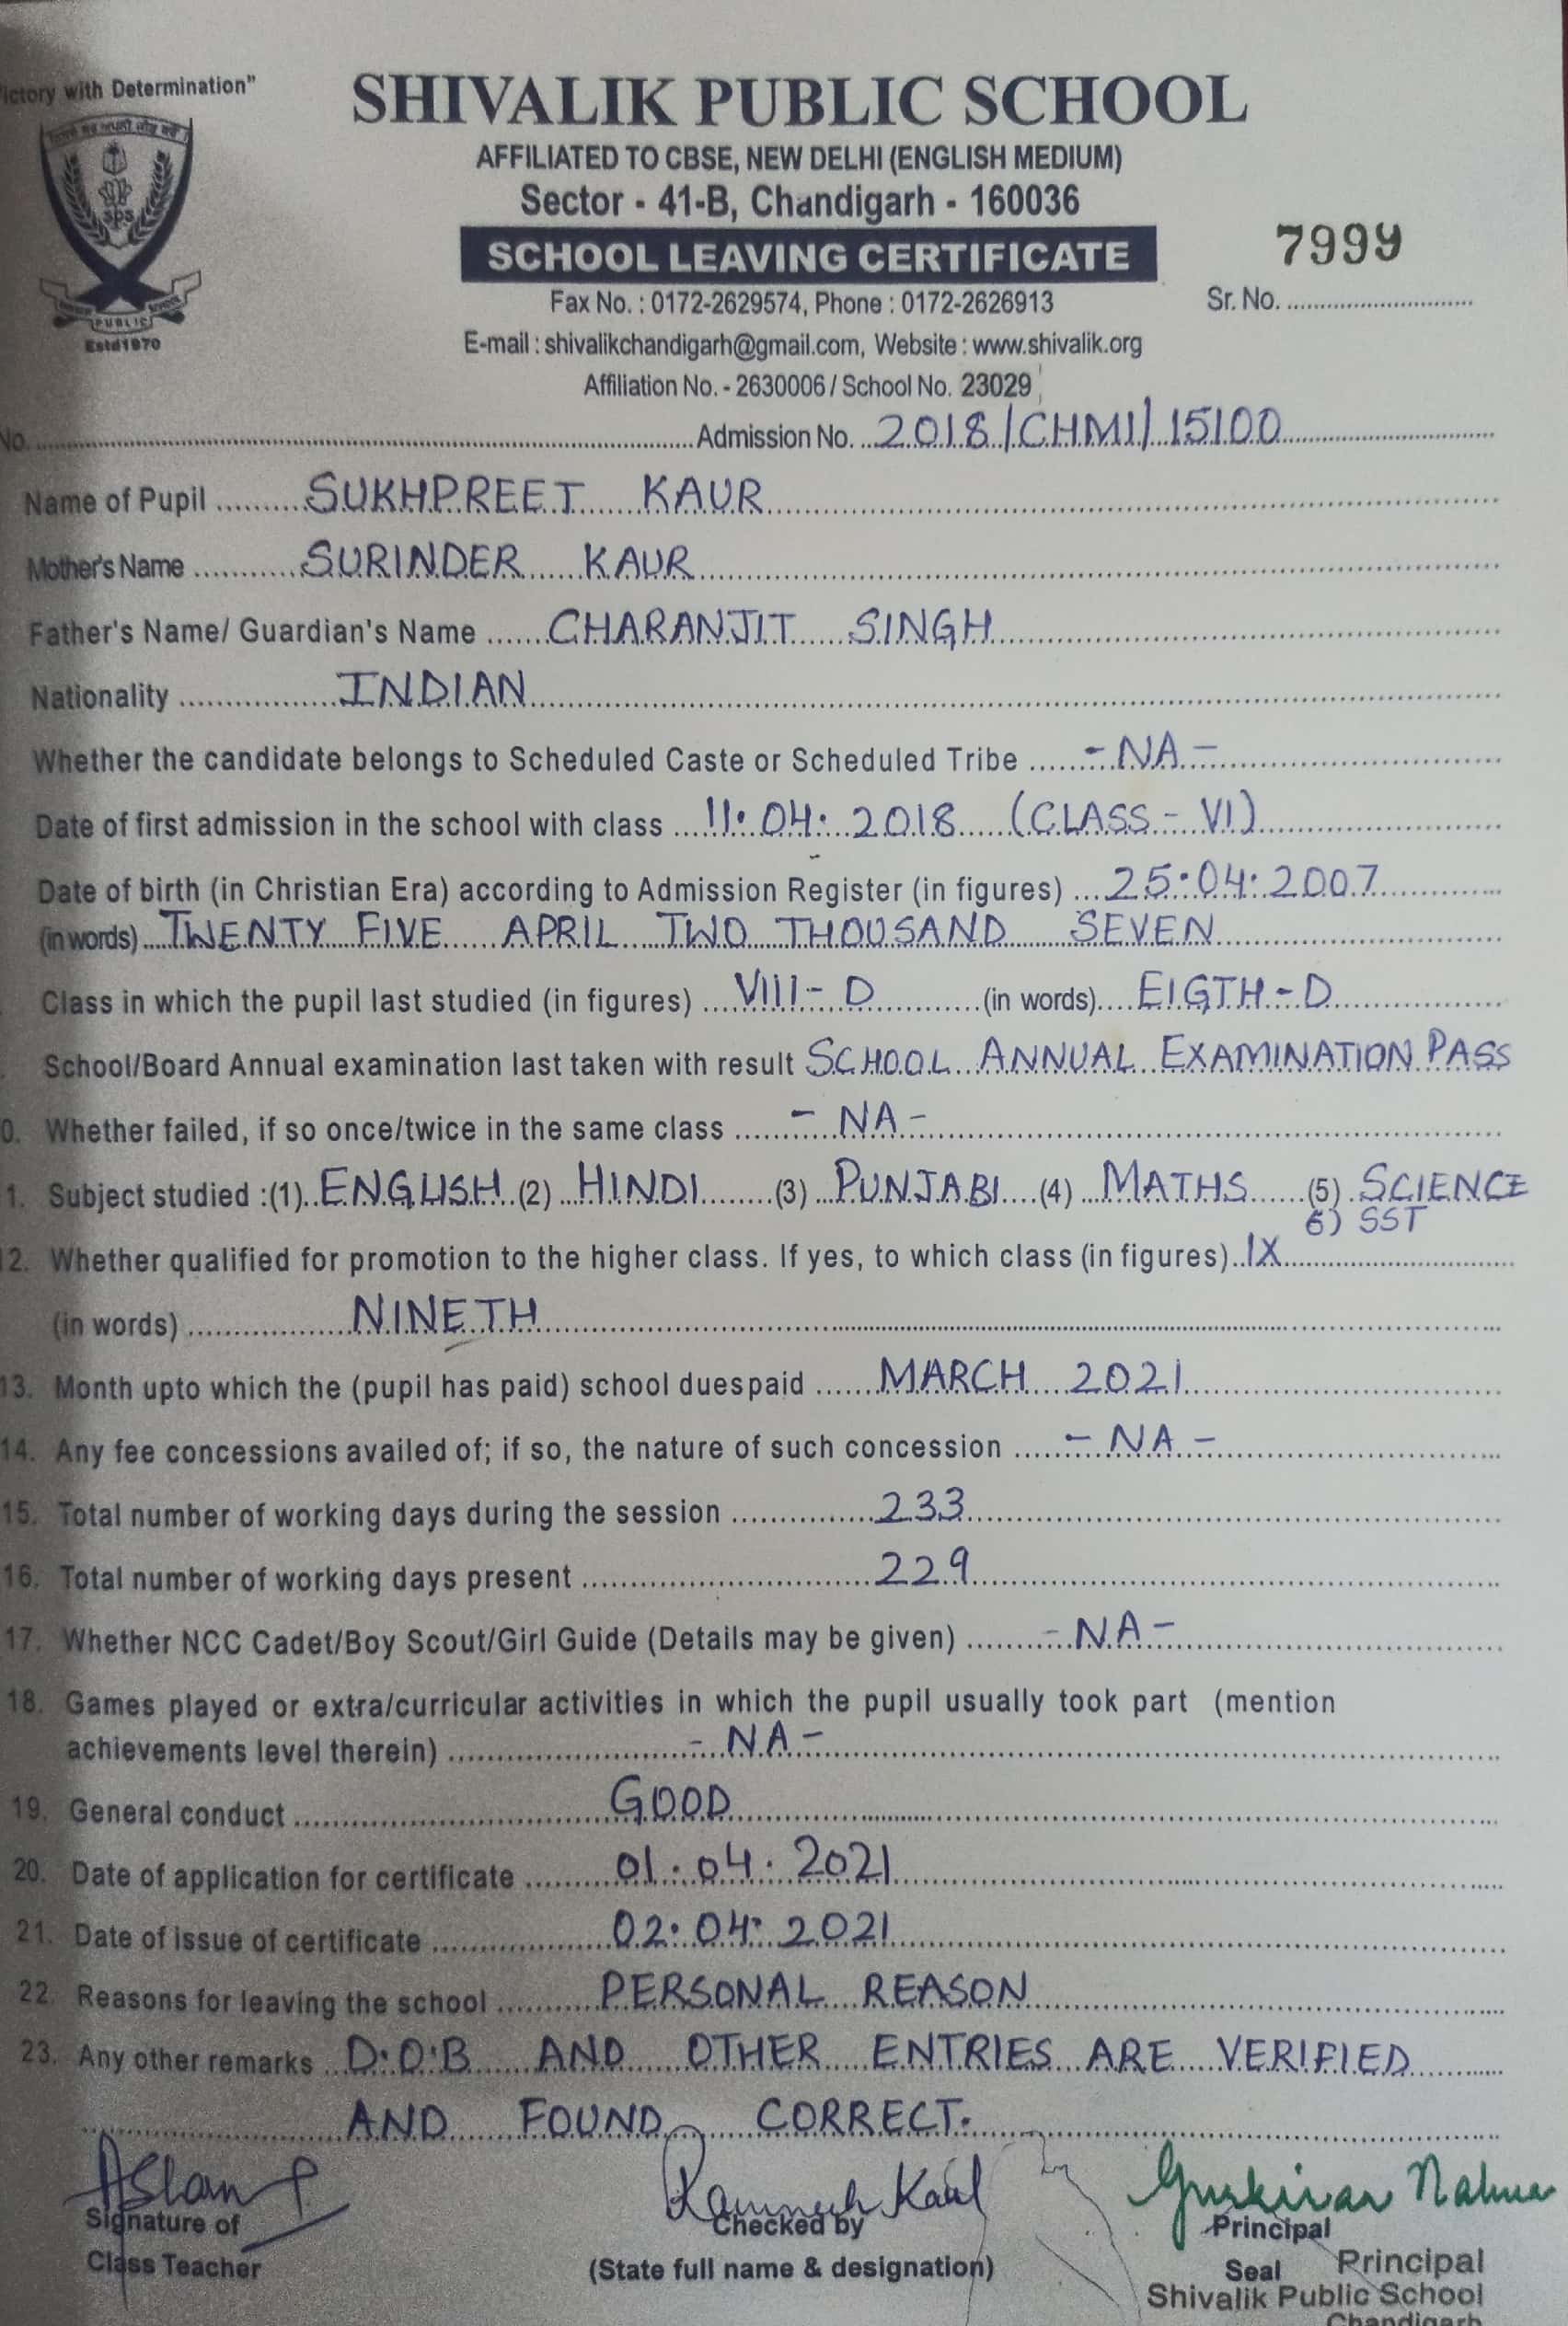 ictory with Determination"
SHIVALIK PUBLIC SCHOOL
AFFILIATED TO CBSE, NEW DELHI (ENGLISH MEDIUM)
Sector - 41-B, Chandigarh - 160036
SPS
PUBLIC SCHOOL
Estd1970
SCHOOL LEAVING CERTIFICATE
7999
Fax No. : 0172-2629574, Phone : 0172-2626913
Sr. No. ..............................
E-mail : shivalikchandigarh@gmail.com, Website : www.shivalik.org
Affiliation No. - 2630006 / School No. 23029
No. .............................. Admission No. 2018/CHMI/15100
Name of Pupil SUKHPREET KAUR
Mother's Name SURINDER KAUR
Father's Name/ Guardian's Name CHARANJIT SINGH
Nationality INDIAN
Whether the candidate belongs to Scheduled Caste or Scheduled Tribe - NA -
Date of first admission in the school with class 11.04.2018 (CLASS - VI)
Date of birth (in Christian Era) according to Admission Register (in figures) 25.04.2007
(in words) TWENTY FIVE APRIL TWO THOUSAND SEVEN
Class in which the pupil last studied (in figures) VIII - D (in words) EIGTH - D
School/Board Annual examination last taken with result SCHOOL ANNUAL EXAMINATION PASS
0. Whether failed, if so once/twice in the same class - NA -
1. Subject studied :(1) ENGLISH (2) HINDI (3) PUNJABI (4) MATHS (5) SCIENCE
6) SST
12. Whether qualified for promotion to the higher class. If yes, to which class (in figures) IX
(in words) NINETH
13. Month upto which the (pupil has paid) school duespaid MARCH 2021
14. Any fee concessions availed of; if so, the nature of such concession - NA -
15. Total number of working days during the session 233
16. Total number of working days present 229
17. Whether NCC Cadet/Boy Scout/Girl Guide (Details may be given) - NA -
18. Games played or extra/curricular activities in which the pupil usually took part (mention
achievements level therein) - NA -
19. General conduct GOOD
20. Date of application for certificate 01.04.2021
21. Date of issue of certificate 02.04.2021
22. Reasons for leaving the school PERSONAL REASON
23. Any other remarks D.O.B AND OTHER ENTRIES ARE VERIFIED
AND FOUND CORRECT.
Signature of
Class Teacher
Checked by
(State full name & designation)
Principal
Seal
Principal
Shivalik Public School
Chandigarh